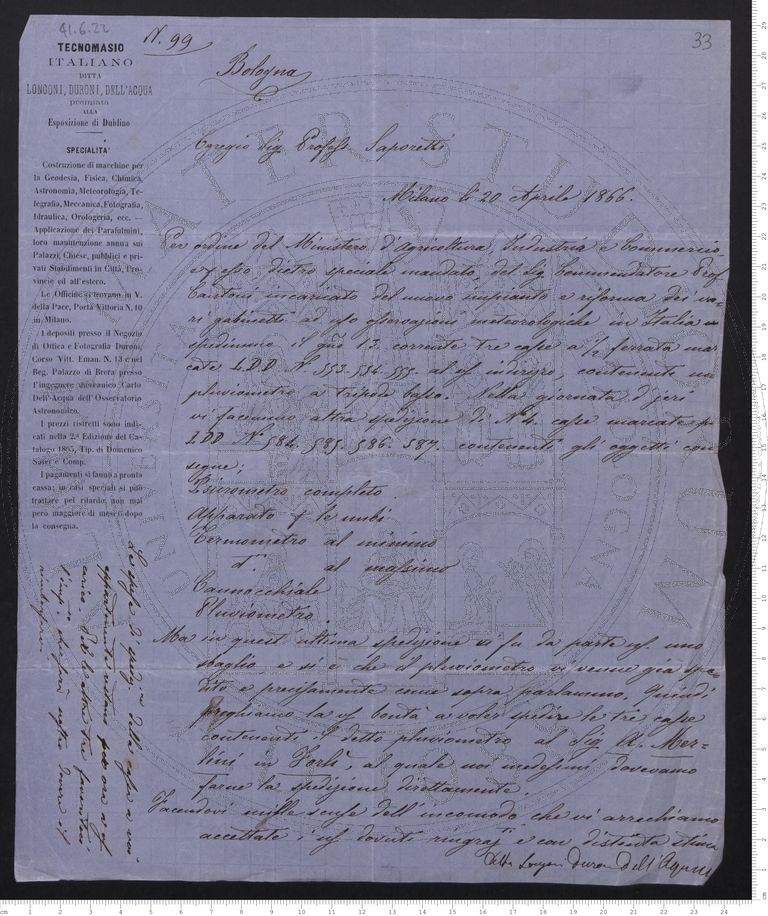 41.6.22
N. 99
33
TECNOMASIO
ITALIANO
DITTA
LONGONI, DURONI, DELL'ACQUA
premiata
ALLA
Esposizione di Dublino
SPECIALITA'
Costruzione di macchine per
la Geodesia, Fisica, Chimica,
Astronomia, Meteorologia, Te-
legrafia, Meccanica, Fotografia,
Idraulica, Orologeria, ecc. —
Applicazione dei Parafulmini,
loro manutenzione annua sui
Palazzi, Chiese, pubblici e pri-
vati Stabilimenti in Città, Pro-
vincie ed all'estero.
Le Officine si trovano in V.
della Pace, Porta Vittoria N. 10
in Milano.
I depositi presso il Negozio
di Ottica e Fotografia Duroni,
Corso Vitt. Eman. N. 13 e nel
Reg. Palazzo di Brera presso
l'ingegnere meccanico Carlo
Dell'Acqua dell'Osservatorio
Astronomico.
I prezzi ristretti sono indi-
cati nella 2.a Edizione del Ca-
talogo 1865, Tip. di Domenico
Salvi e Comp.
I pagamenti si fanno a pronta
cassa; in casi speciali si può
trattare pel ritardo, non mai
però maggiore di mesi 6 dopo
la consegna.
Bologna
Egregio Sig. Profess. Saporetti
Milano li 20 Aprile 1866.
Per ordine del Ministero d'Agricoltura, Industria e Commercio
e p esso dietro speciale mandato del Sig Commendatore Prof
Cantoni incaricato del nuovo impianto e riforma dei va-
ri gabinetti ad uso osservazioni meteorologiche in Italia vi
spedimmo il giorno corrente tre casse a 1/2 ferrata mar
cate L.D.D N. 553. 554. 555. al indirizzo, contenenti un
pluviometro a tripode basso. Nella giornata d'jeri
vi facemmo altra spedizione di N. 4. casse marcate
L.DD N. 584. 585. 586. 587. contenenti gli oggetti con
segue;
Psicrometro completo
Apparato p le nubi
Termometro al minimo
d.o al massimo
Cannocchiale
Pluviometro.
Ma in quest'ultima spedizione vi fu da parte ns. uno
sbaglio e si è che il pluviometro vi venne già spe
dito e precisamente come sopra parlammo. Quindi
preghiamo la vs bontà a voler spedire le tre casse
contenenti il detto pluviometro al Sig A. Mer-
lini in Forlì, al quale noi medesimi dovevamo
farne la spedizione direttamente.
Facendovi mille scuse dell'incomodo che vi arrechiamo
accettate i ns dovuti ringraz.ti e con distinta stima
Ditta Longoni Duroni Dell'Acqua
Le spese di spediz.ne della cassa a voi
appartenente restano
carico. Per le altre tre